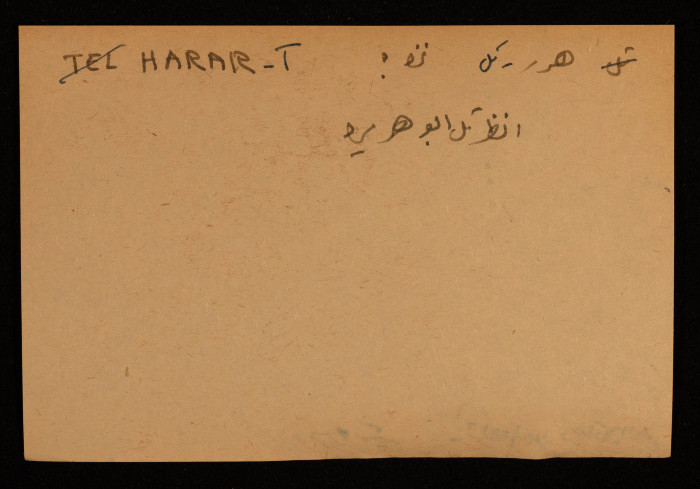 TEL HARAR-T تل هرر - تل
انظر تل ابو هريرة